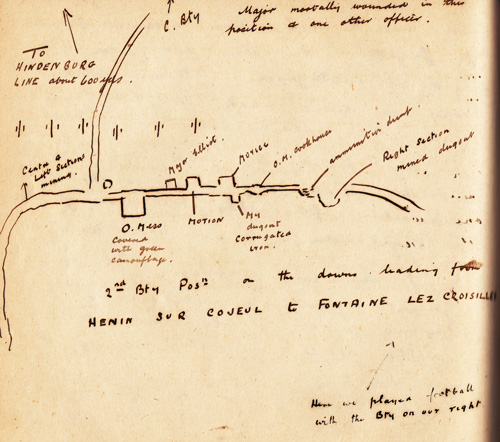 C. Bty
Major mortally wounded in this
position & one other officer.
To
HINDENBURG
LINE about 600 yds.
Centre &
Left Section
mining.
Major Elliot
MOTION
O.M. cookhouse
ammunition dump
Right Section
mined dugout
O. Mess
Covered
with green
camouflage.
MOTION
My
dugout
Corrugated
iron.
2nd Bty Posn on the downs leading from
HENIN SUR COJEUL to FONTAINE LEZ CROISILLES
Here we played football
with the Bty on our right